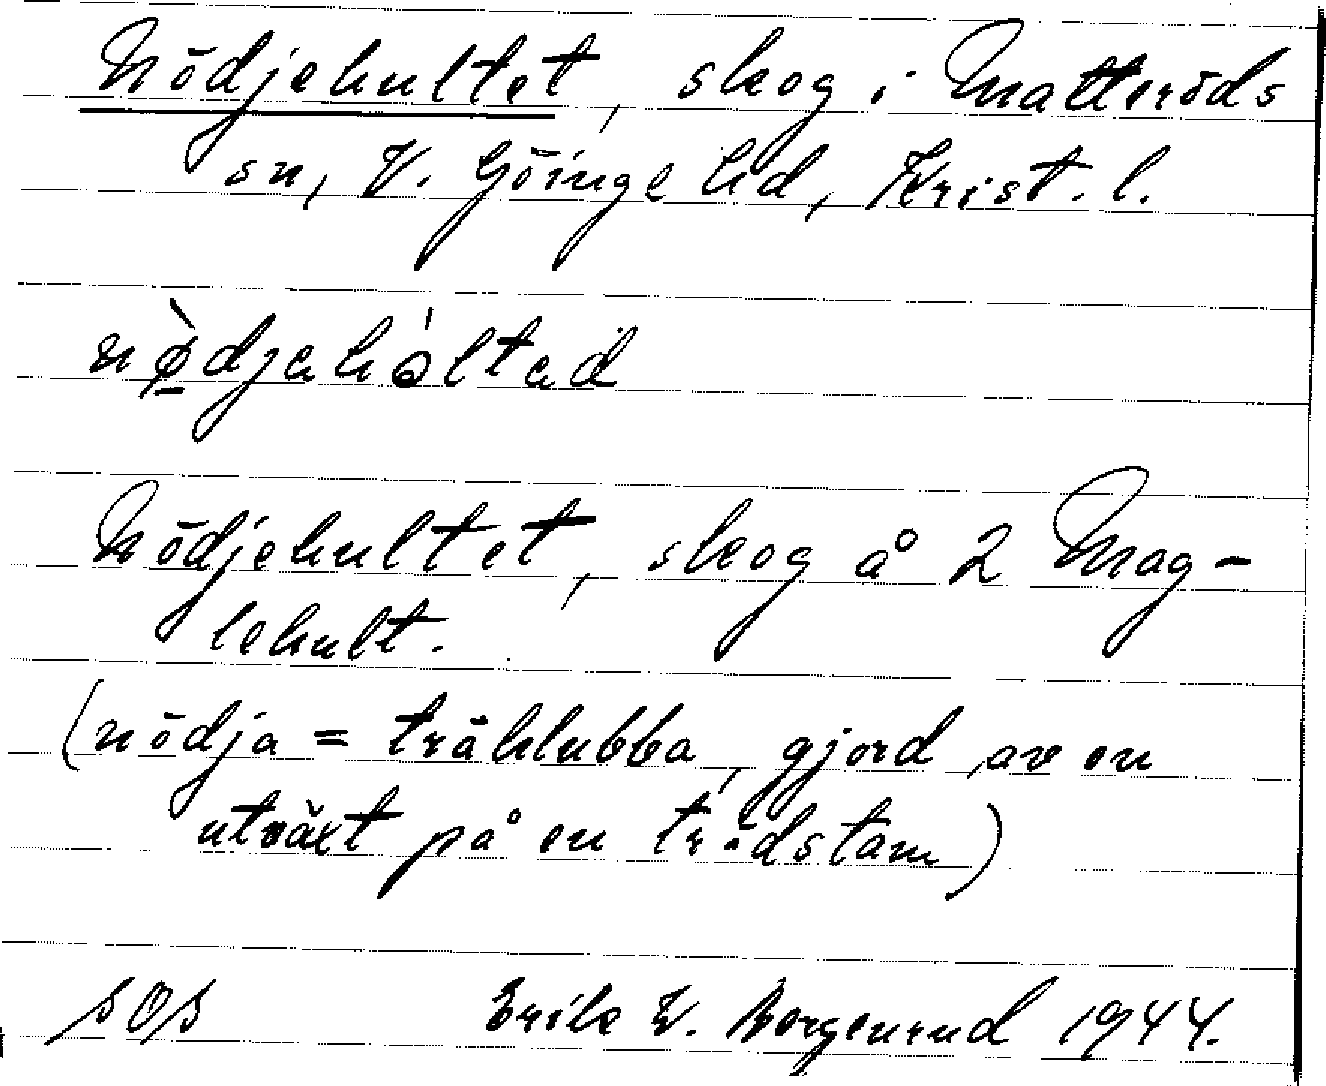 Nödjehultet, skog i Matteröds
sn, V. Göinge hd, Krist. l.
nø̱̀djahó̱ltad
Nödjehultet, skog å 2 Mag-
lehult.
(nödja = träklubba, gjord av en
utväxt på en trädstam)
SOS Erik W. Bergenrud 1944.